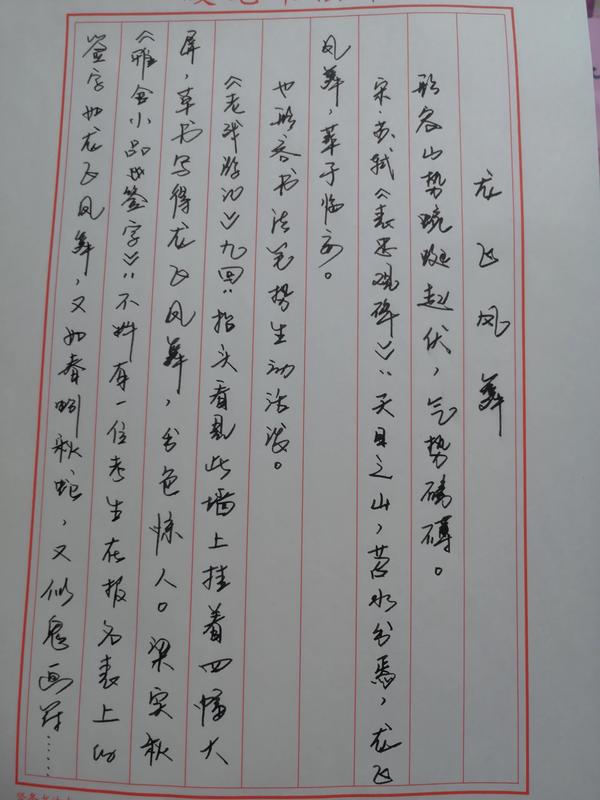 龙飞凤舞
形容山势蜿蜒起伏，气势磅礴。
宋·苏轼《表忠观碑》：天目之山，苕水出焉，龙飞
凤舞，萃于临安。
也形容书法笔势生动活泼。
《老残游记》九回：抬头看见此墙上挂着四幅大
屏，草书写得龙飞凤舞，出色惊人。梁实秋
《雅舍小品·签字》：不料有一位考生在报名表上的
签字如龙飞凤舞，又如春蚓秋蛇，又似鬼画符……